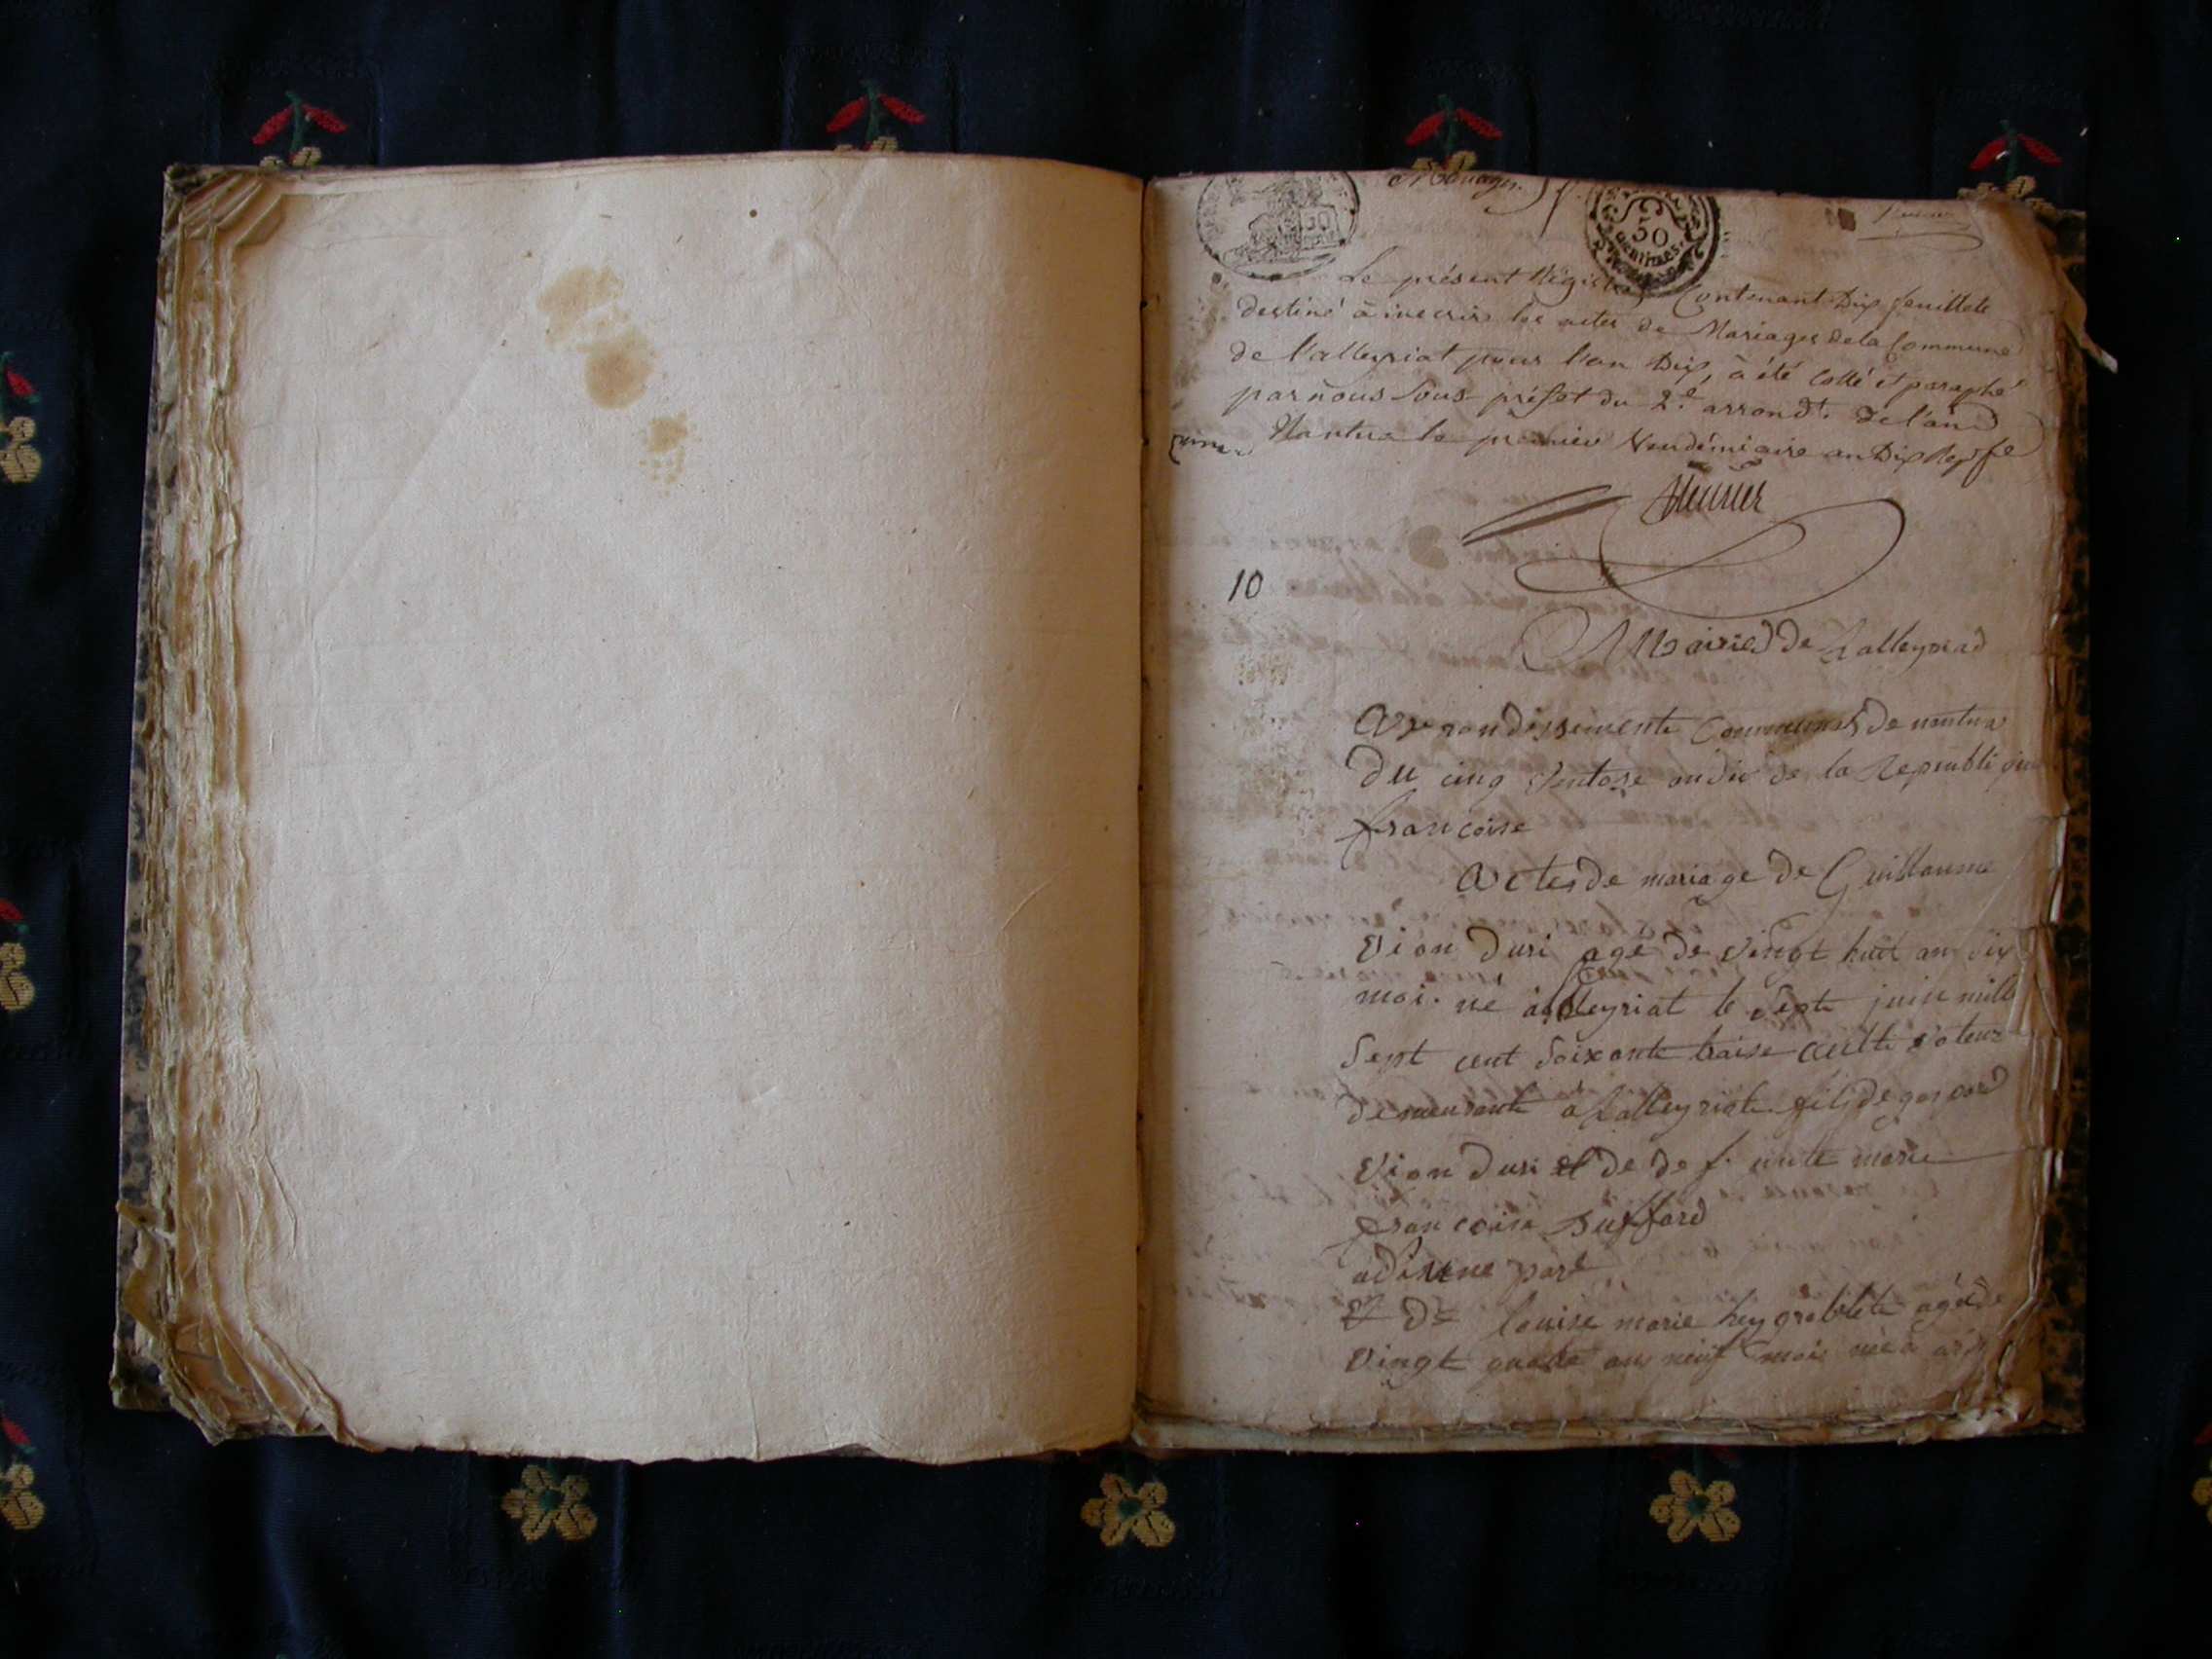 Mariages.
50
centimes.
Le présent Régistre Contenant Dix feuillets
destiné à inscrire les actes de Mariages de la Commune
de l'alleyriat pour l'an Dix, à été Cotté et paraphé
par nous Sous préfet du 2e. arrondt. de l'ain
Nantua le premier Vendémiaire an Dix
10
Mairie de Lalleyriad
Arrondissemente Communal de nantua
du cinq Ventose an dix de la Republique
francoise
Actes de mariage de Guillaume
Vion duri agé de vingt huit an dix
moi. né à leyriat le sept juin mill
sept cent soixante traise
demeurante a Lalleyriate fils de gaspard
Vion duri et de def. unte marie
francoise Duffard
d'une part
Et de louise marie agée de
vingt quatre an neuf mois née à